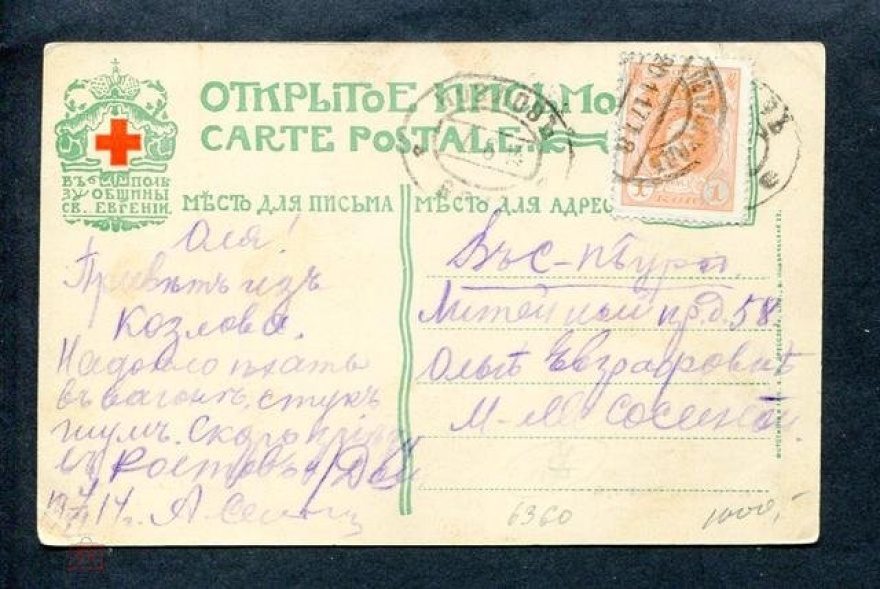 ОТКРЫТОЕ ПИСЬМО
CARTE POSTALE.
ВЪ ПОЛЬ
ЗУ ОБЩИНЫ
СВ. ЕВГЕНІИ.
МѢСТО ДЛЯ ПИСЬМА
МѢСТО ДЛЯ АДРЕС
1 1
КОП
Оля!
Привѣтъ изъ
Козлова.
Надоѣло ѣхать
въ вагонѣ, стукъ
шумъ. Скоро
въ Ростовъ н/Дону
14 г. А.
Въ С-Пбургъ.
Литейный пр. д. 58
Ольгѣ Евграфовнѣ
М-ме
6360
1000,-